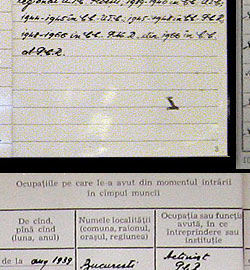 1944-1945 în C.C. U.T.C., 1945-1948 în C.C. P.C.R.,
1948-1966 în C.C. P.C.R. din 1966 în C.C.
al P.C.R.
3
Ocupațiile pe care le-a avut din momentul intrării
în cîmpul muncii
De cînd,
pînă cînd
(luna, anul)
Numele localității
(comuna, raionul,
orașul, regiunea)
Ocupația sau funcția
avută, în ce
întreprindere sau
instituție
de la aug 1939
București
Activist